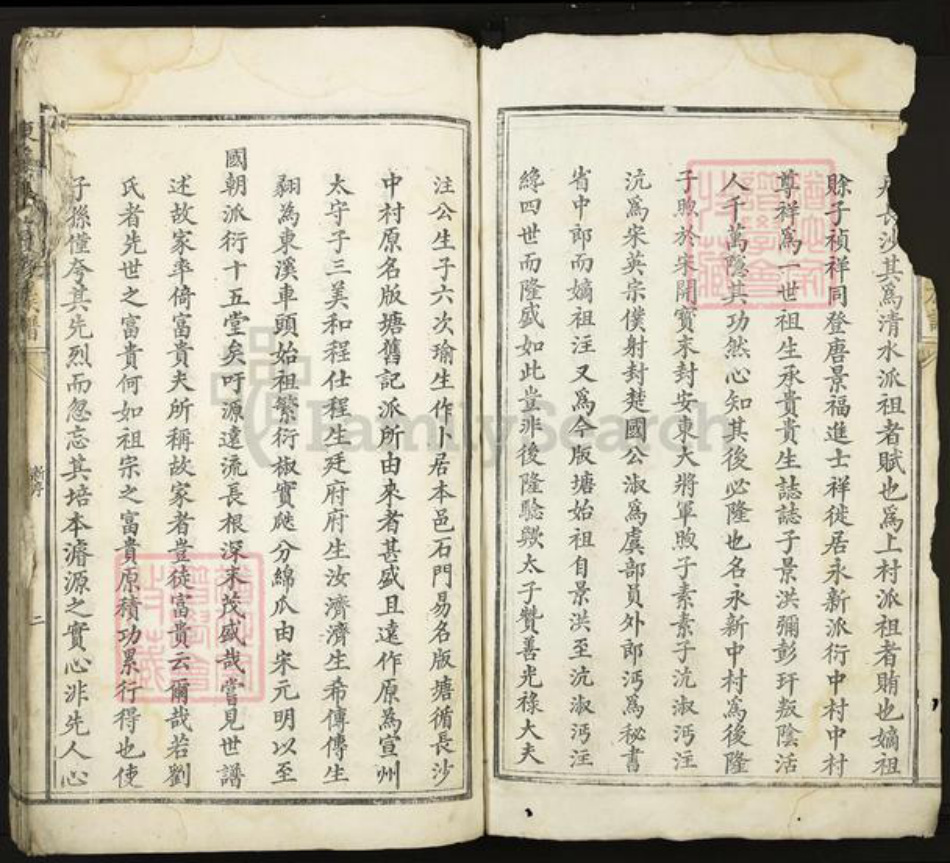 長沙其爲清水派祖者賦也爲上村派祖者賄也嫡祖
賒子禎祥同登唐景福進士祥徙居永新派衍中村中村
尊祥爲一世祖生承貴貴生誌誌子景洪彌彭玕叛陰活
人千萬隱其功然心知其後必隆也名永新中村爲後隆
子煦於宋開寶末封安東大將軍煦子素素子沆淑沔汪
沆爲宋英宗僕射封楚國公淑爲虞部員外郎沔爲秘書
省中郎而嫡祖注又爲今版塘始祖自景洪至沆淑沔汪
纔四世而隆盛如此豈非後隆驗歟太子贊善光祿大夫
注公生子六次瑜生作卜居本邑石門易名版塘循長沙
中村原名版塘舊記派所由來者甚盛且遠作原爲宣州
太守子三美和程仕程生廷府府生汝濟濟生希傳傳生
翱為東溪車頭始祖繁衍椒實瓞分綿瓜由宋元明以至
國朝派衍十五堂矣吁源遠流長根深末茂盛哉嘗見世譜
述故家率倚富貴夫所稱故家者豈徒富貴云爾哉若劉
氏者先世之富貴何如祖宗之富貴原積功累行得也使
子孫僅夸其先烈而忽忘其培本濬源之實心非先人心
族譜
新序
二
FamilySearch